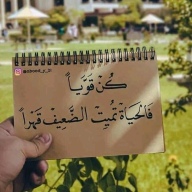 كُن قَوِيّاً
فَالحَيَاةْ تُمِيِتْ الضَّعِيفْ قَهْراً